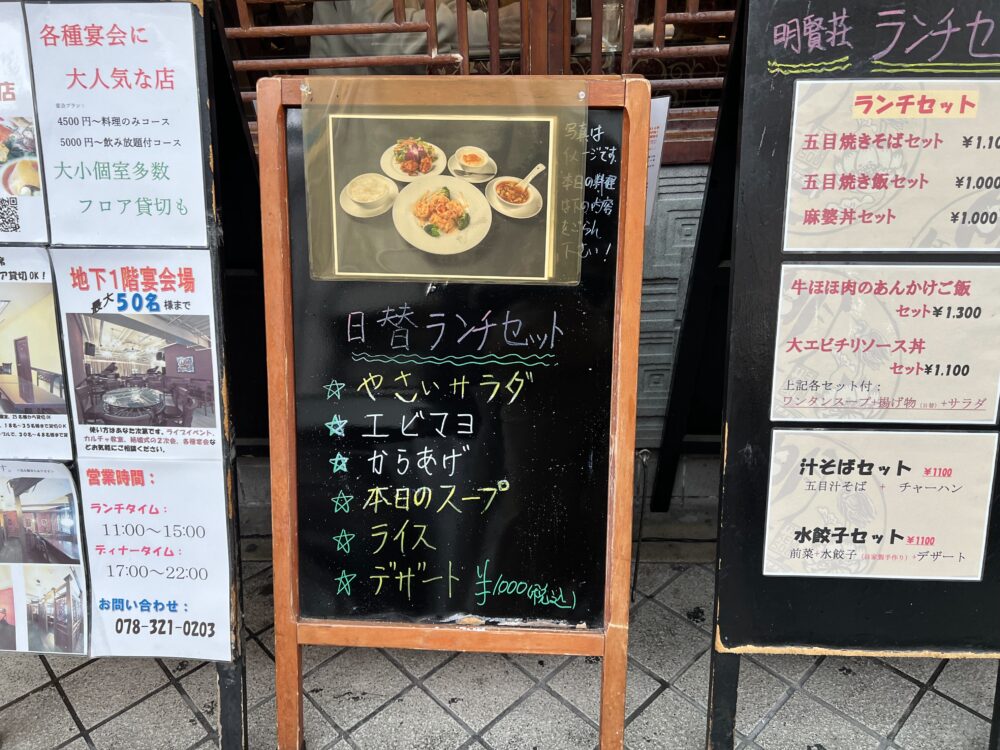 店
各種宴会に
大人気な店
宴会プラン:
4500円~料理のみコース
5000円~飲み放題付コース
大小個室多数
フロア貸切も
ア貸切OK!
地下1階宴会場
最大50名様まで
使い方はあなた次第です。ライブイベント、
カルチャ教室、結婚式の2次会、各種宴会など
どお気軽にご相談ください。
営業時間:
ランチタイム:
11:00~15:00
ディナータイム:
17:00~22:00
お問い合わせ:
078-321-0203
写真は
イメージです。
本日の料理
は下の内容
をごらん
下さい!
日替ランチセット
☆やさいサラダ
☆エビマヨ
☆からあげ
☆本日のスープ
☆ライス
☆デザート ¥1000(税込)
明賢荘 ランチセ
ランチセット
五目焼きそばセット ¥1.10
五目焼き飯セット ¥1.000
麻婆丼セット ¥1.000
牛ほほ肉のあんかけご飯
セット¥1.300
大エビチリソース丼
セット¥1.100
上記各セット付:
ワンタンスープ+揚げ物(日替)+サラダ
汁そばセット ¥1100
五目汁そば + チャーハン
水餃子セット ¥1100
前菜+水餃子(自家製手作り)+デザート